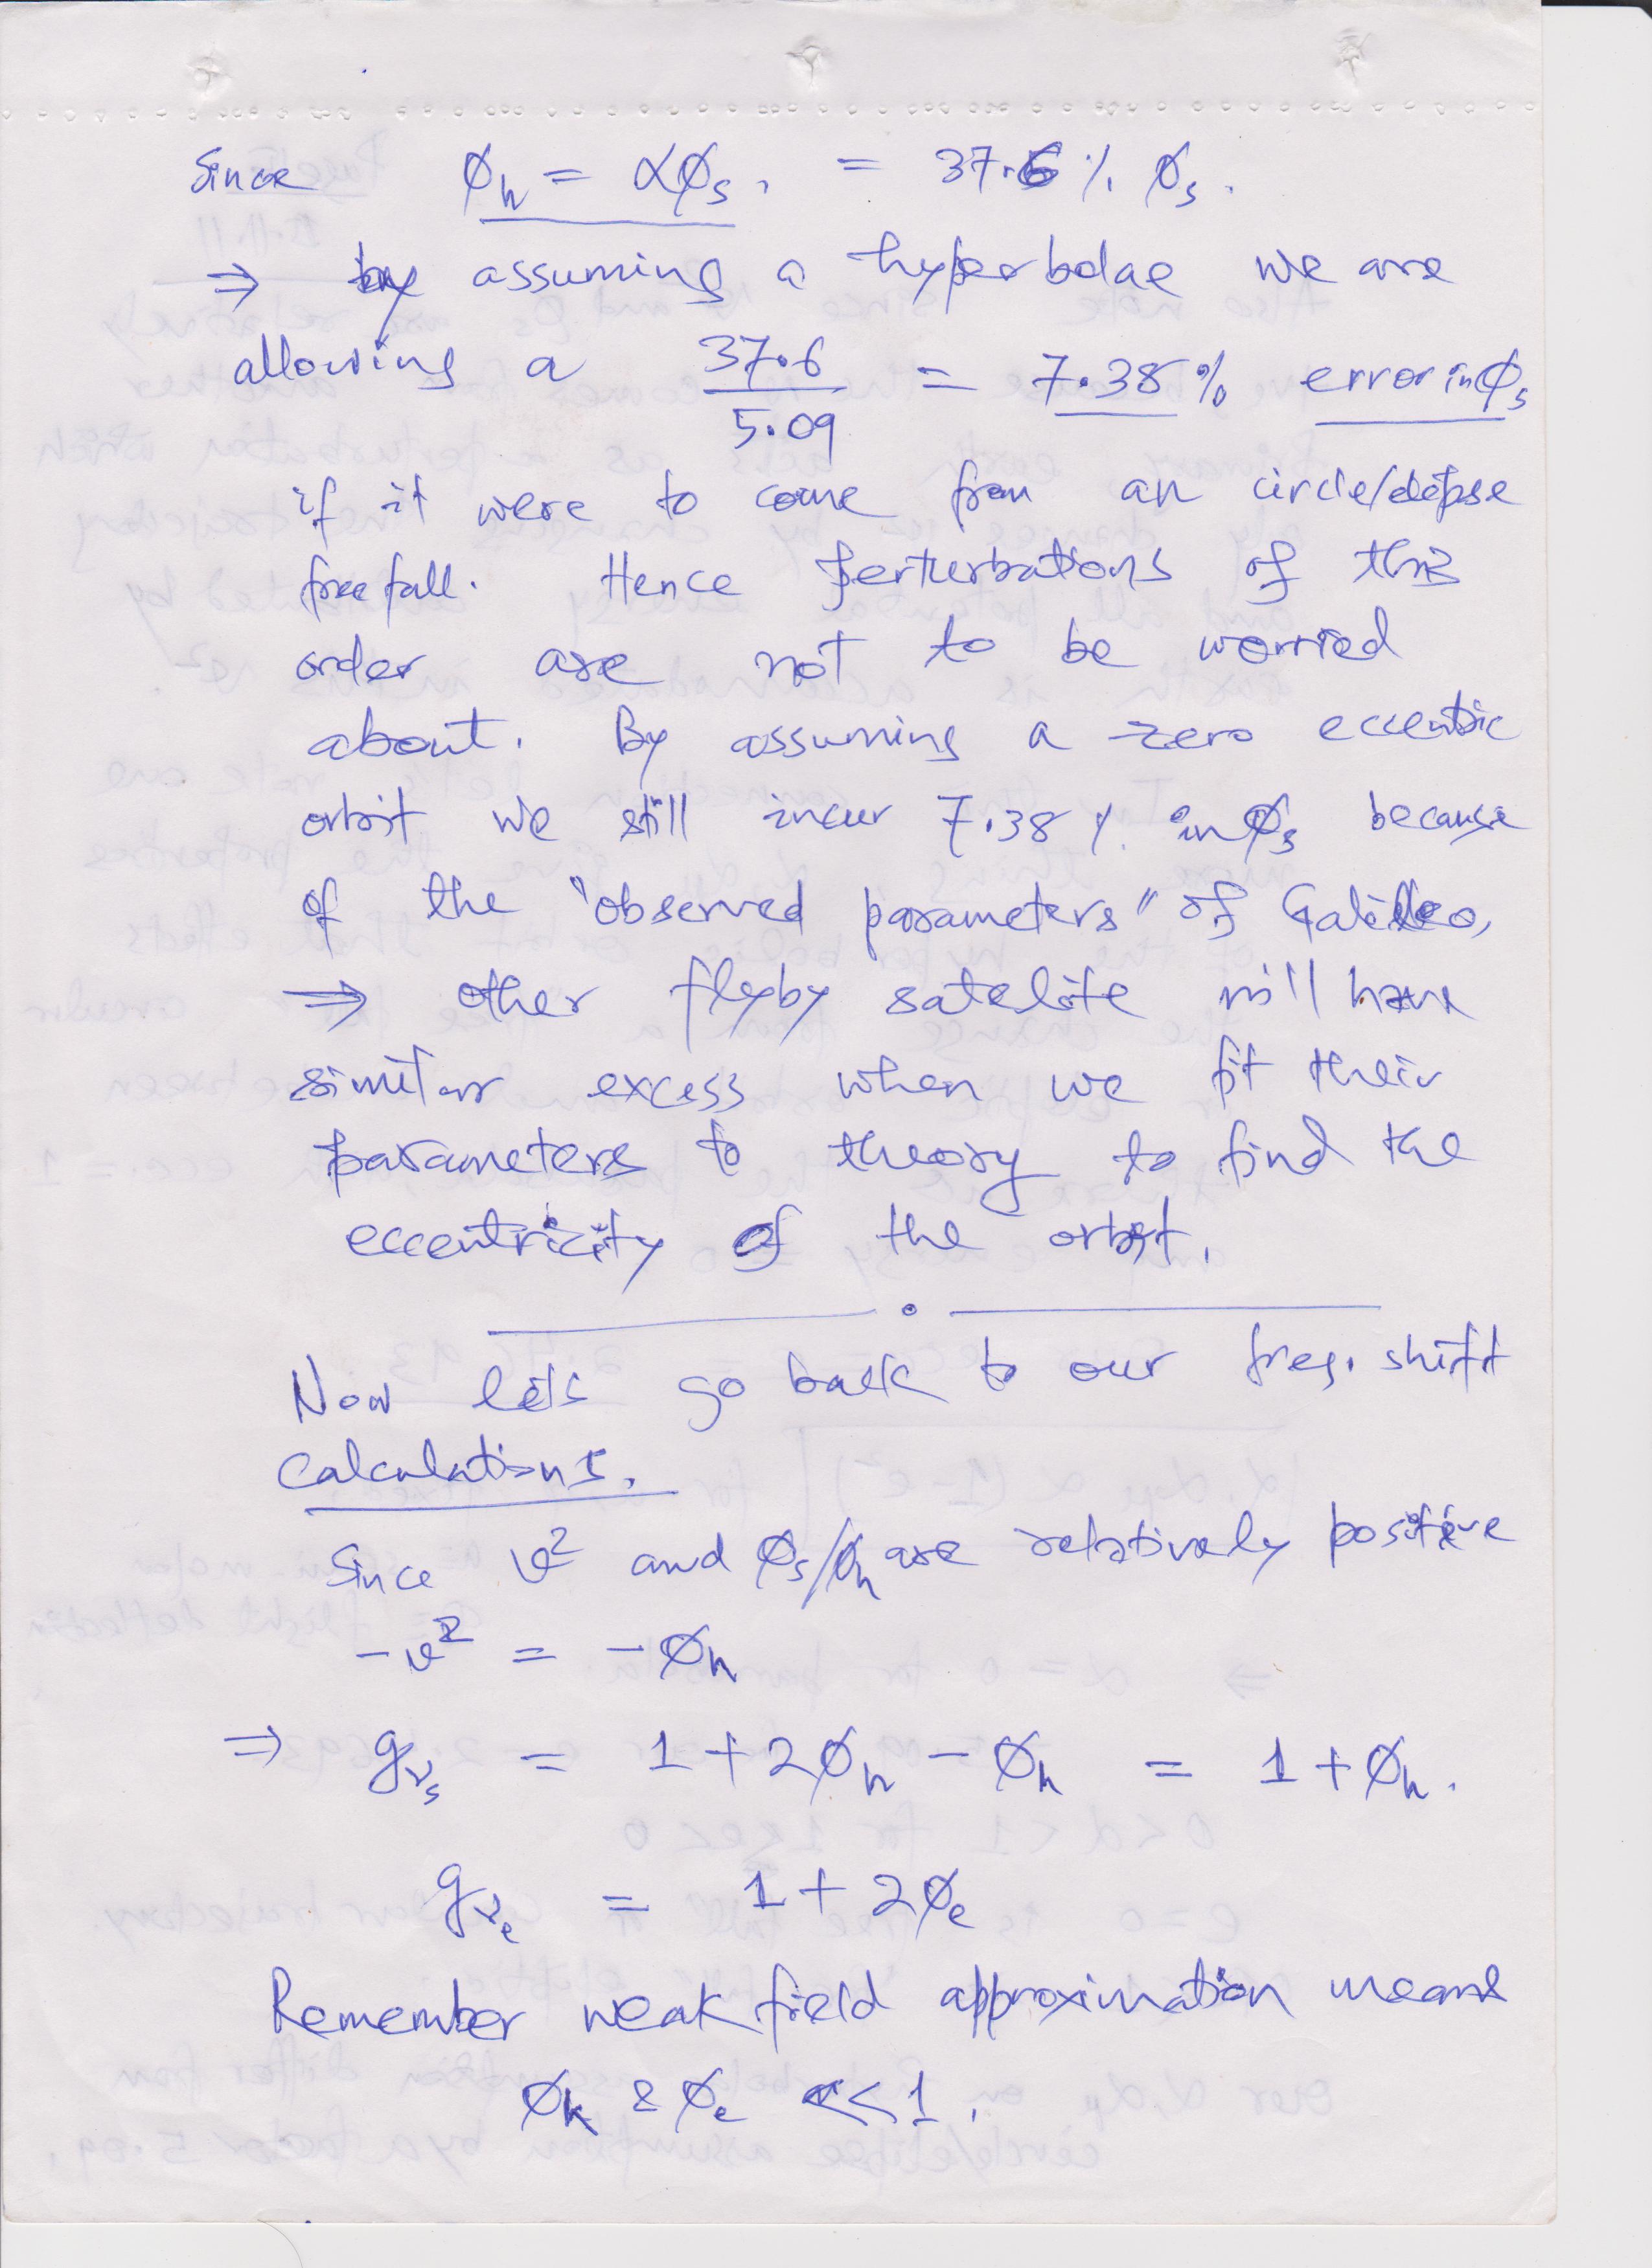 Since ϕₕ = αϕₛ. = 37.6% ϕₛ.
⇒ by assuming a hyperbolae we are
allowing a 37.6/5.09 = 7.38% error in ϕₛ
if it were to come from an circle/elipse
free fall. Hence perturbations of this
order are not to be worried
about. By assuming a zero eccentric
orbit we still incur 7.38% in ϕₛ because
of the "observed parameters" of Galileo,
⇒ other flyby satelite will have
similar excess when we fit their
parameters to theory to find the
eccentricity of the orbit.
Now lets go back to our freq. shift
calculations.
Since v² and ϕₛ/ϕₕ are relatively positive
-v² = -ϕₕ
⇒ g_νₛ = 1 + 2ϕₕ - ϕₕ = 1 + ϕₕ.
g_νₑ = 1 + 2ϕₑ
Remember weak field approximation means
ϕₕ & ϕₑ << 1.